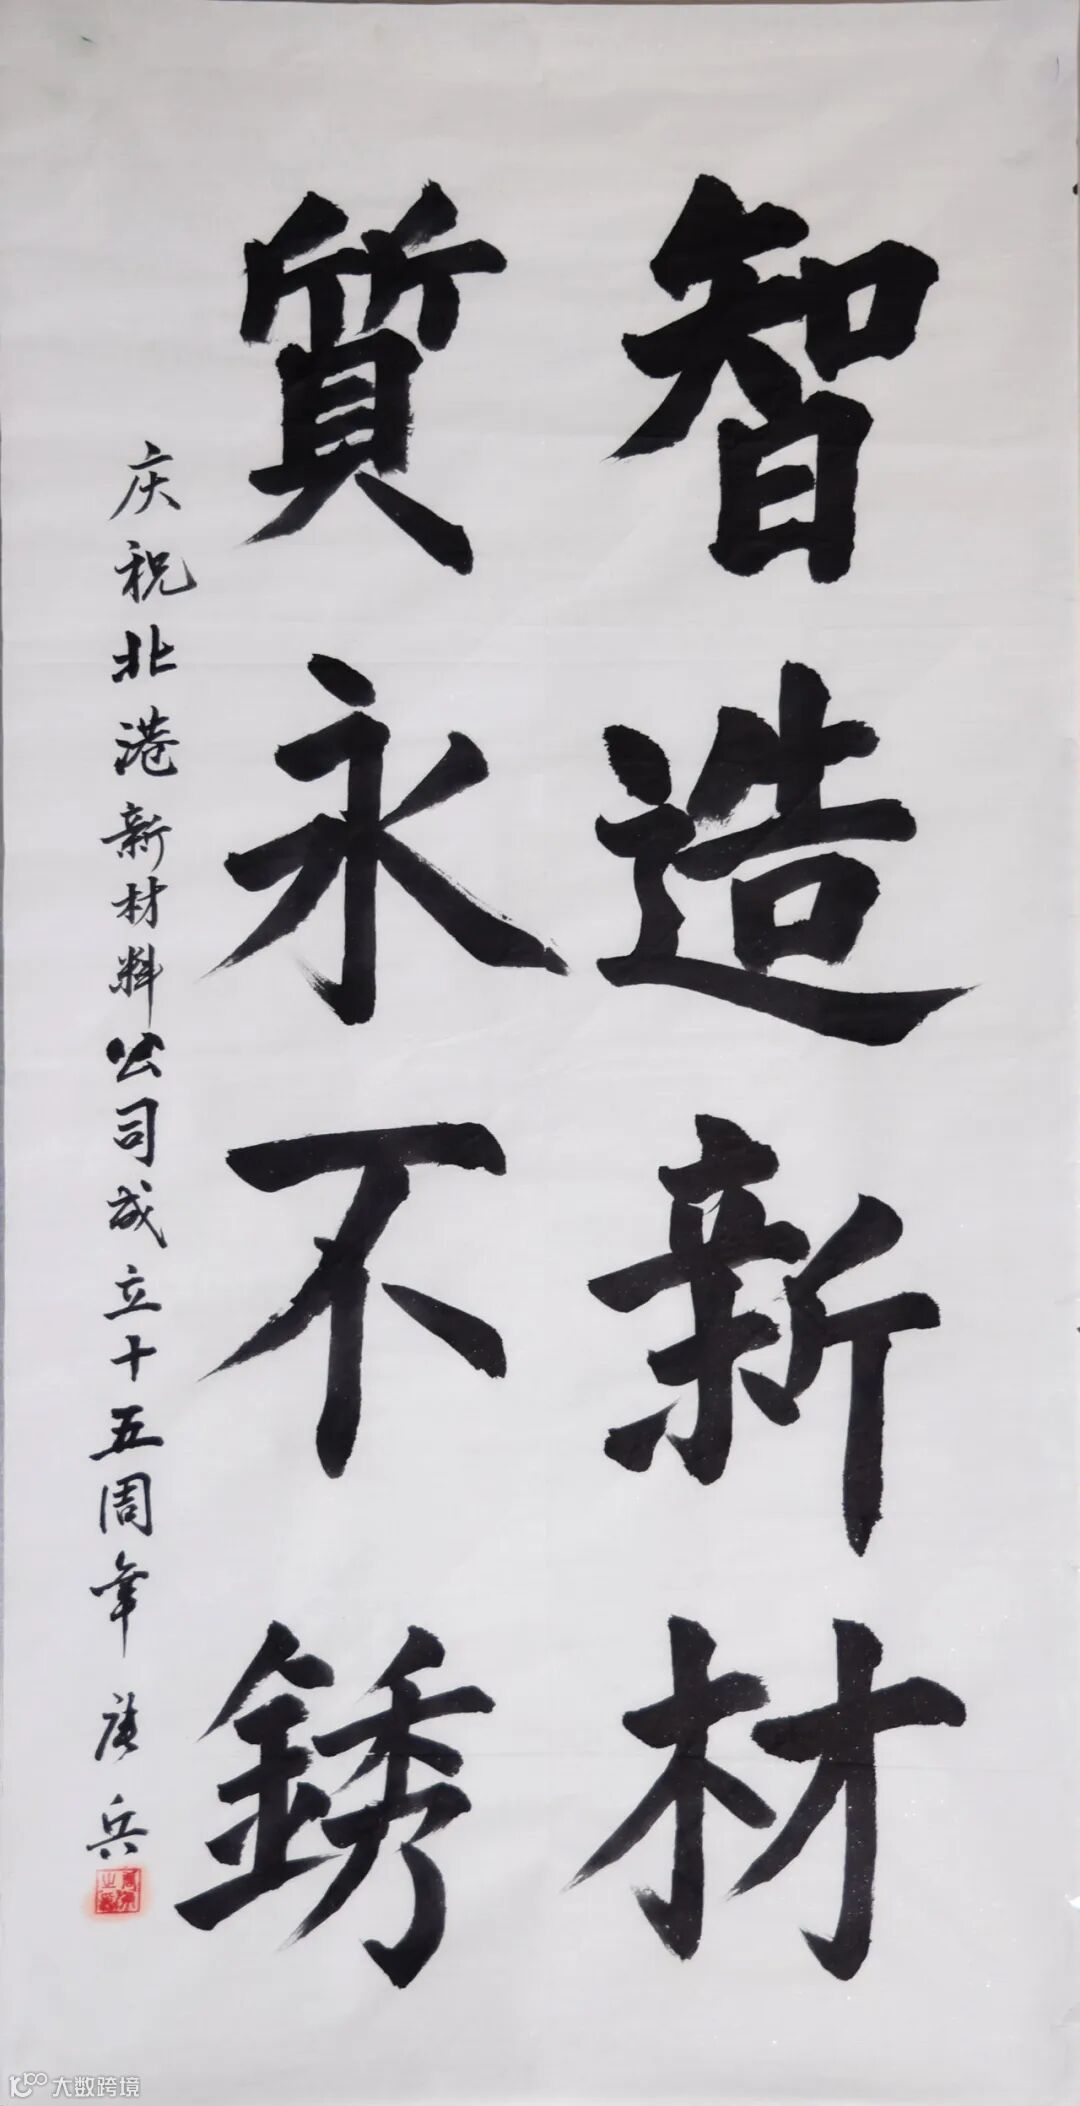 智造新材
質永不銹
庆祝北港新材料公司成立十五周年 唐兵
大数跨境